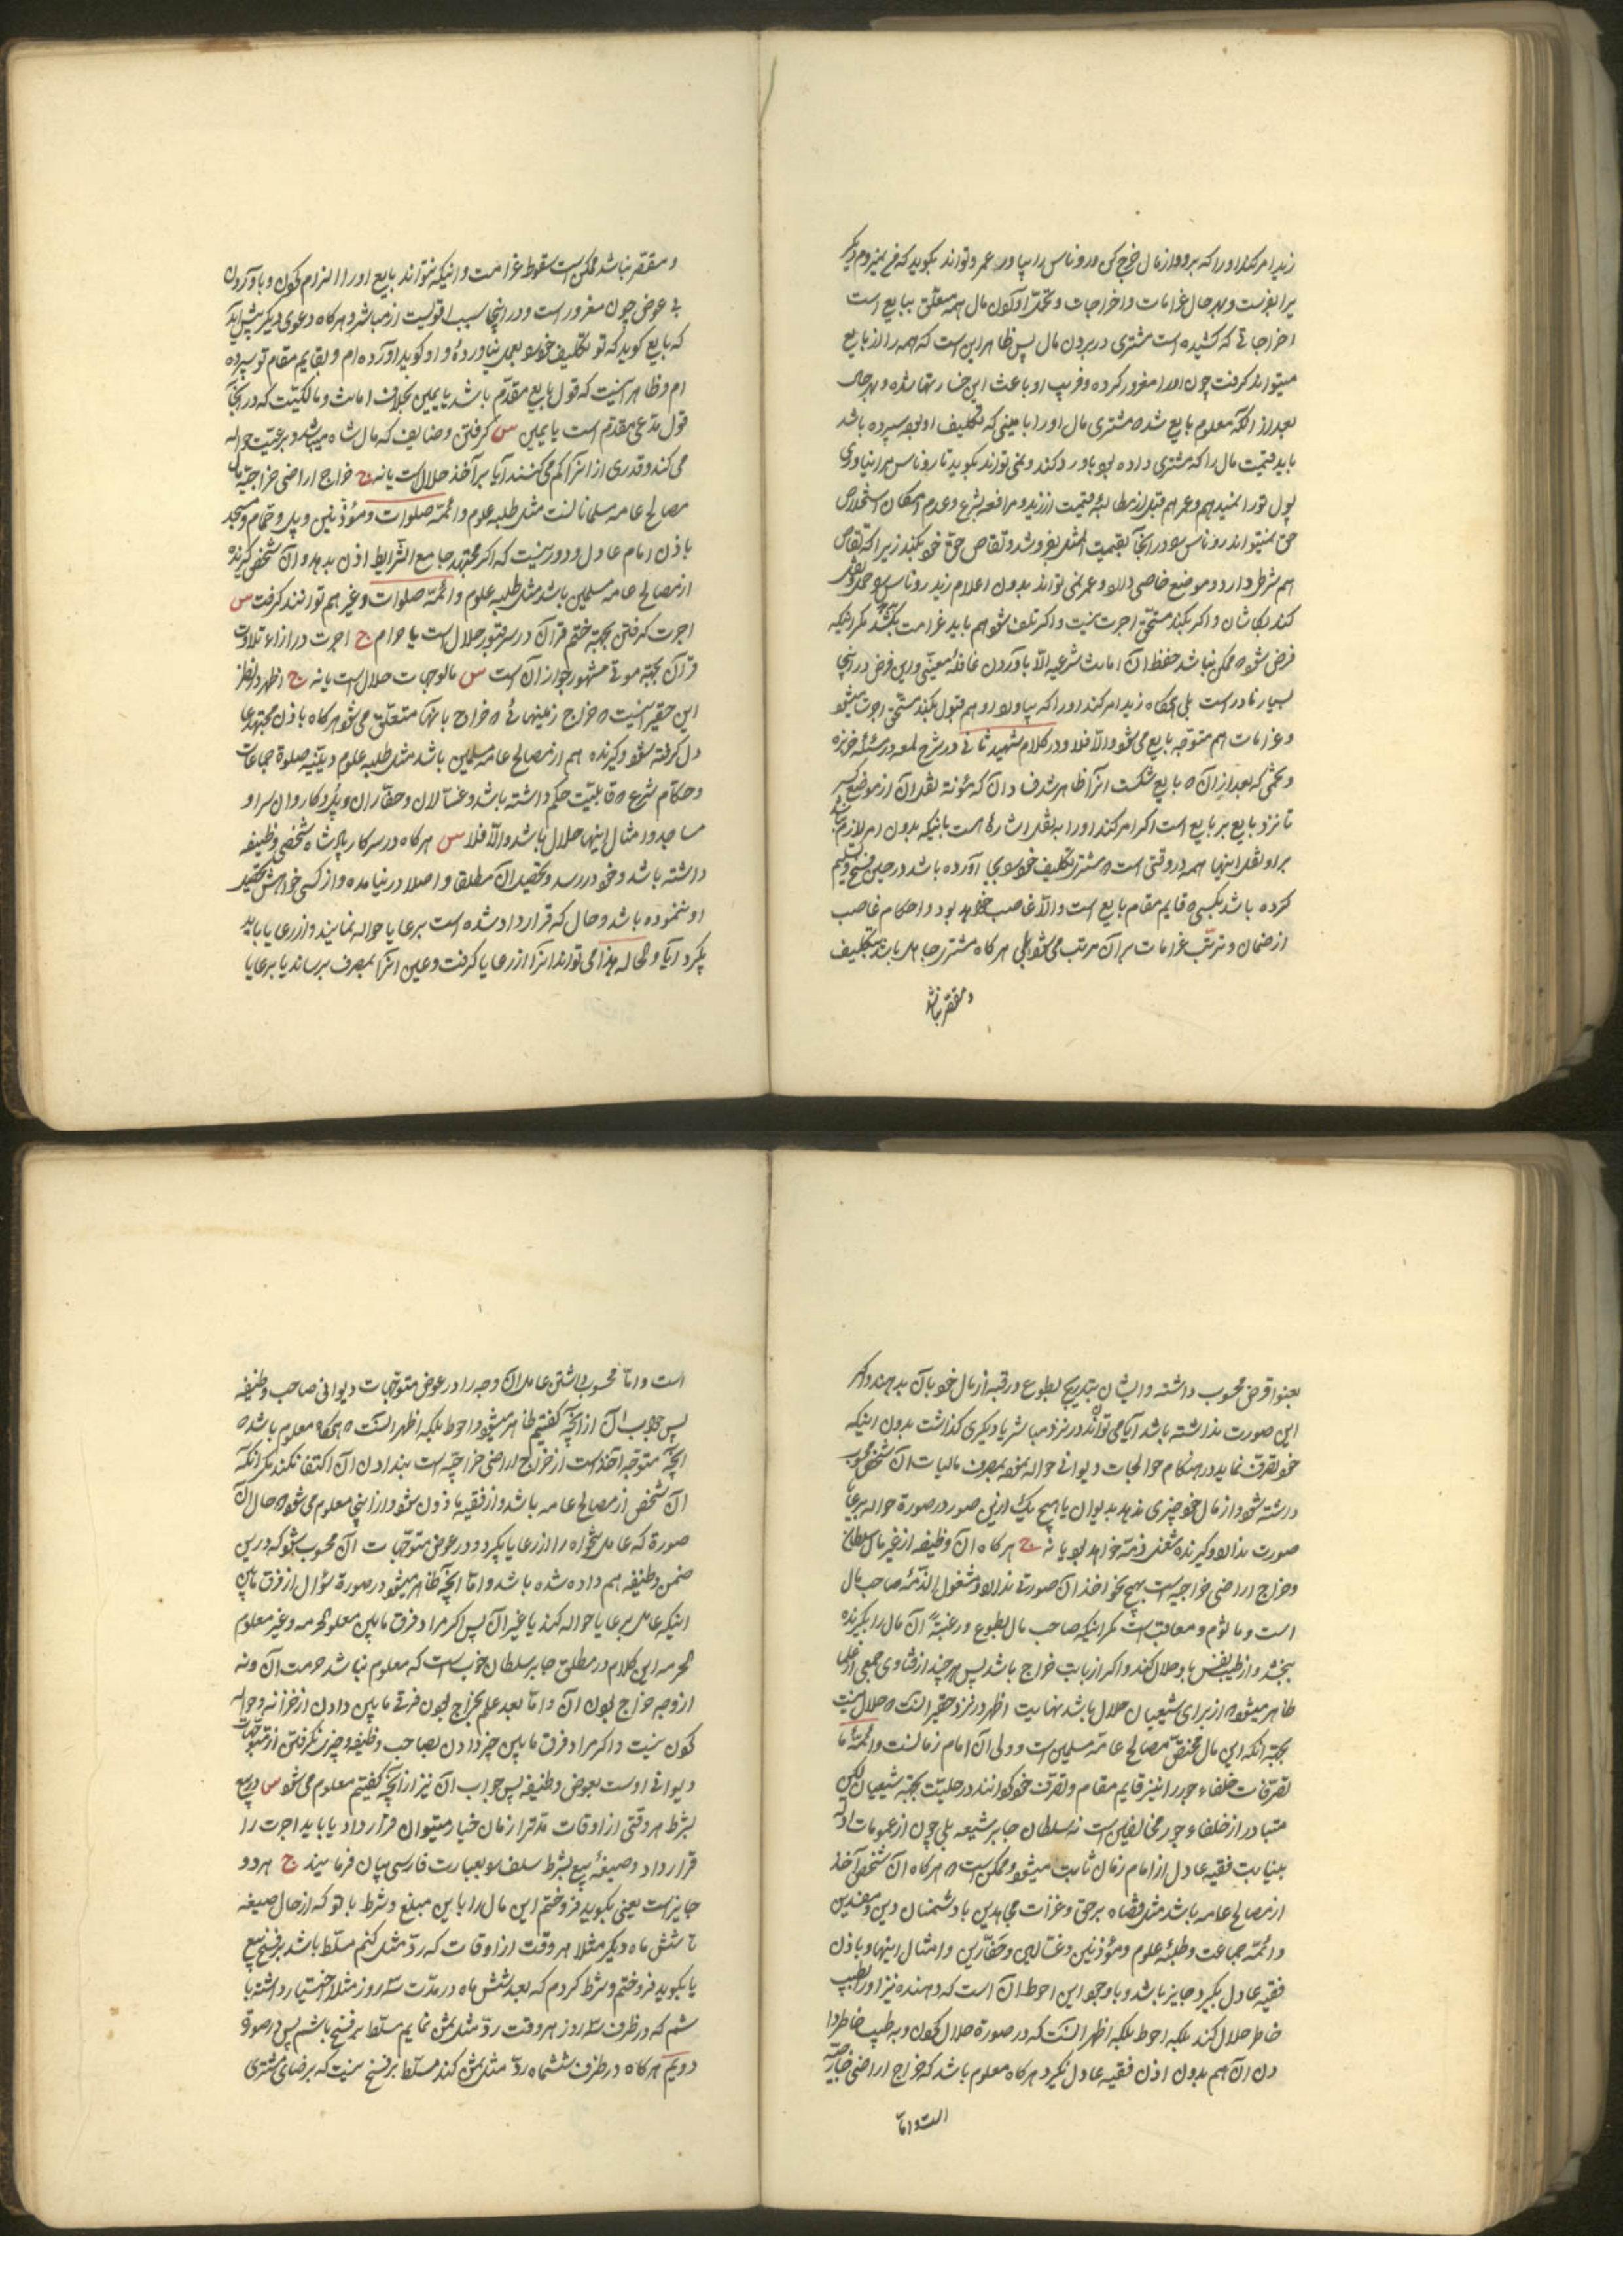 زید امر کند او را که برو و از مال خرج کن و روناس را بیاور عمرو تواند بگوید که من نمیروم دیگر
یرا بفرست و بهر حال غرامات و اخراجات و تحمّل آوردن مال همه متعلّق ببایع است
اخراجاتی که کشیده است مشتری در بردن مال پس ظاهر این است که همه را از بایع
میتواند گرفت چون او را مغرور کرده و فریب او باعث این خسارتها شده و بهر حال
بعد از آنکه معلوم بایع شد که مشتری مال او را بامینی که تکلیف او بود سپرده باشد
باید قیمت مال را که مشتری داده بود باو رد کند و نمی تواند بگوید تا روناس مرا نیاوری
پول تو را نمیدهم و عمرو هم قبل از مطالبهٔ قیمت از زید و مرافعه بشرع و عدم امکان استخلاص
حق نمیتواند روناس را در آنجا بقیمت المثل بفروشد و تقاص حق خود بکند زیرا که تقاص
هم شرط دارد و موضع خاصی دارد و عمرو نمی تواند بدون اعلام زید روناس را حمل و نقل
کند بکاشان و اگر بکند مستحق اجرت نیست و اگر تلف شود هم باید غرامت بکشد مگر اینکه
فرض شود که ممکن نباشد حفظ آن امانت شرعیه الّا باوردن قافلهٔ معیّنی و این فرض در اینجا
بسیار نادر است بلی هرگاه زید امر کند او را که بیاورد او هم قبول بکند مستحق اجرت میشود
و غرامات هم متوجه بایع می شود و الّا فلا و در کلام شهید ثانی در شرح لمعه در مسئله خربزه
و تخمی که بعد از آن که بایع شکست آنرا ظاهر شد فساد آن که مؤنه نقل آن از موضع کسر
تا نزد بایع بر بایع است اگر امر کند او را به نقل اشاره است باینکه بدون امر لازم نباشد
بر او نقل اینها همه در وقتی است که مشتری تکلیف خود را بجای آورده باشد در حین فسخ و تسلیم
کرده باشد بکسی که قایم مقام بایع است و الّا غاصب خواهد بود و احکام غاصب
از ضمان و ترتّب غرامات بر آن مرتب می شود بلی هرگاه مشتری جاهل باشد بتکلیف
و مقصّر نباشد
و مقصّر نباشد ممکن است سقوط غرامت و اینکه نتواند بایع او را الزام کردن و باوردن
بی عوض چون مغرور است و در اینجا سبب اقوی است از مباشر و هرگاه دعوی دیگر پیش آید
که بایع گوید که تو تکلیف خود را بعمل نیاوردهٔ و او گوید آورده ام و بقایم مقام تو سپرده
ام و ظاهر اینست که قول بایع مقدّم باشد با یمین بخلاف امانت و مالکیّت که در آنجا
قول مدعی مقدّم است با یمین س گرفتن وضایف که مال شاه میباشد و برعیت حواله
می کند و قدری از آنرا کم می کنند آیا بر آخذ حلال است یا نه ج خراج اراضی خراجیّه مال
مصالح عامه مسلمانانست مثل طلبه علوم و ائمّه صلوات و مؤذّنین و پل و حمّام و مسجد
باذن امام عادل و دور نیست که اگر مجتهد جامع الشّرایط اذن بدهد و آن شخص گیرنده
از مصالح عامه مسلمین باشد مثل طلبه علوم و ائمّه صلوات و غیرهم توانند گرفت س
اجرت گرفتن بجهة ختم قرآن در سر قبور حلال است یا حرام ج اجرت در ازاء تلاوت
قرآن بجهة موتی مشهور جواز آن است س مالوجهات حلال است یا نه ج اظهر در نظر
این حقیر اینست که خراج زمینهائی که خراج بآنها متعلّق می شود هرگاه باذن مجتهد عا
دل گرفته شود و گیرنده هم از مصالح عامه مسلمین باشد مثل طلبه علوم دینیّه صلوة جماعات
و حکّام شرع که قابلیّت حکم داشته باشد و غسّالان و حفّاران و پل و کاروانسرا و
مساجد و امثال اینها حلال باشد و الّا فلا س هرگاه در سرکار پادشاه شخصی وظیفه
داشته باشد و خود در رسد و تحصیل آن مطلقا و اصلا در نیامده و از کسی خواهش تحصیل
او ننموده باشد و حال که قرارداد شده است برعایا حواله نمایند و از رعایا باید
بگیرد آیا و الحاله هذا می تواند آنرا از رعایا گرفت و عین آنرا بمصرف برساند یا برعایا
بعنوان قرض محسوب داشته و ایشان بتدریج بطوع و رقبه از مال خود بآن بدهند و اگر
این صورت نداشته باشد آیا می تواند در نزد مباشر یا دیگری گذاشت بدون اینکه
خود تصرف نماید در هنگام حوالجات دیوانی حواله نموده بمصرف مالیات آن شخص محسوب
داشته شود و از مال خود چیزی ندهد بدیوان یا هیچ یک از این صور در صورة حواله برعایا
صورت ندارد و گیرنده مشغل ذمّه خواهد بود یا نه ج هرگاه آن وظیفه از غیر مال سلطان
و خراج اراضی خراجیه است بهیچ نحو اخذ آن صورتی ندارد و مشغول الذّمّه صاحب مال
است و مأثوم و معاقب است مگر اینکه صاحب مال بطوع و رغبة آن مال را بگیرنده
ببخشد و از طیب نفس باو حلال کند و اگر از بابت خراج باشد پس هر چند از فتاوی جمعی از علما
ظاهر میشود که از برای شیعیان حلال باشد نهایت اظهر در نزد حقیر آنست که حلال نیست
بجهة آنکه این مال مختصّ مصالح عامّه مسلمین است و ولی آن امام زمانست و ائمّهٔ ما
تصرّفات خلفاء جور را نیز قایم مقام و تصرّف خود گردانند در حلیّت بجهة شیعیان لکن
متبادر از خلفاء جور مخالفین است نه سلطان جابر شیعه بلی چون از عمومات ادلّه
بنیابت فقیه عادل از امام زمان ثابت میشود و ممکن است که هرگاه آن شخص آخذ
از مصالح عامه باشد مثل قضاه برحق و غزات مجاهدین با دشمنان دین و مفسدین
و ائمّه جماعت و طلبهٔ علوم و مؤذنین و غسّالین و حفّارین و امثال اینها و باذن
فقیه عادل بگیرد جایز باشد و با وجود این احوط آن است که دهنده نیز او را بطیب
خاطر حلال کند بلکه احوط بلکه اظهر آنست که در صورة حلال کردن و به طیب خاطر دا
دن آن هم بدون اذن فقیه عادل نگیرد هرگاه معلوم باشد که خراج اراضی خراجیّه
است و امّا
است و امّا محسوب داشتن عامل آن وجه را در عوض متوجّهات دیوانی صاحب وظیفه
پس جواب آن از آنچه گفتیم ظاهر میشود و احوط بلکه اظهر آنست که هرگاه معلوم باشد که
آنچه متوجّه آخذ است از خراج اراضی خراجیّه است بندادن آن اکتفا نکند مگر آنکه
آن شخص از مصالح عامه باشد و از فقیه مأذون شود و از اینجا معلوم می شود که حال آن
صورة که عامل تنخواه را از رعایا بگیرد و در عوض متوجّهات آن محسوب شود که در این
ضمن وظیفه هم داده شده باشد و امّا آنچه ظاهر میشود در صورة سؤال از فرق مابین
اینکه عامل برعایا حواله کند یا غیر آن پس اگر مراد فرق مابین معلوم الحرمه و غیر معلوم
الحرمه این کلام در مطلق جابر سلطان خوب است که معلوم نباشد حرمت آن و نه
از وجه خراج بودن آن و امّا بعد علم بخراج بودن فرقی مابین دادن از خزانه و حواله
کردن نیست و اگر مراد فرق مابین چیز دادن بصاحب وظیفه و چیزی نگرفتن از متوجّهات
دیوانی اوست بعوض وظیفه پس جواب آن نیز از آنچه گفتیم معلوم می شود س در بیع
بشرط هر وقتی از اوقات مدّت قرار زمان خیار میتوان قرارداد یا باید اجرت را
قرارداد و صیغهٔ بیع بشرط سلف را بعبارت فارسی بیان فرمایند ج هر دو
جایز است یعنی بگوید فروختم این مال را باین مبلغ و شرط با تو که از حال صیغه
تا شش ماه دیگر مثلا هر وقت از اوقات که ردّ مثل کنم مسلّط باشد بر فسخ بیع
یا بگوید فروختم و شرط کردم که بعد شش ماه در مدّت سه روز مثلا اختیار داشته با
شم که در ظرف سه روز هر وقت ردّ مثل ثمن نمایم مسلّط بر فسخ باشم پس در صورة
دویّم هرگاه در ظرف ششماه ردّ مثل ثمن کند مسلّط بر فسخ نیست که برضای مشتری